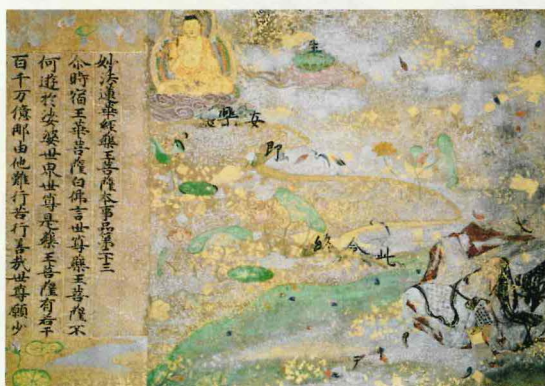 此命終
即
安樂
生
妙法蓮華經藥王菩薩本事品第二十三
尒時宿王華菩薩白佛言世尊藥王菩薩云
何遊於娑婆世界世尊是藥王菩薩有若干
百千万億那由他難行苦行善哉世尊願少